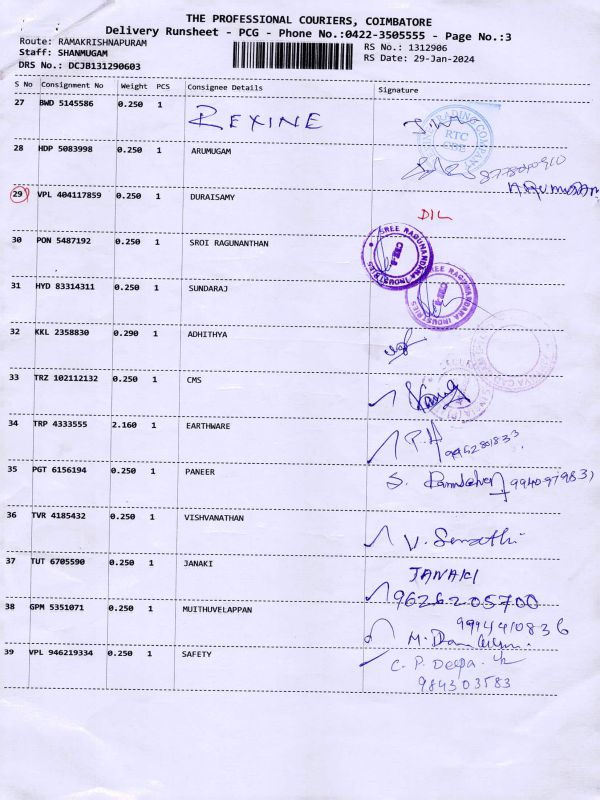 THE PROFESSIONAL COURIERS, COIMBATORE
Delivery Runsheet - PCG - Phone No.:0422-3505555 - Page No.:3
Route: RAMAKRISHNAPURAM
RS No.: 1312906
Staff: SHANMUGAM
RS Date: 29-Jan-2024
DRS No.: DCJB131290603
S No Consignment No Weight PCS Consignee Details Signature
27 BWD 5145586 0.250 1 REXINE
TRADING COMPANY
RTC
CBE
28 HDP 5083998 0.250 1 ARUMUGAM
ARUMUGAM
29 VPL 404117859 0.250 1 DURAISAMY
DIL
30 PON 5487192 0.250 1 SROI RAGUNANTHAN
SREE RAGUNANDANA INDUSTRIES
31 HYD 83314311 0.250 1 SUNDARAJ
SREE RAGUNANDANA INDUSTRIES
32 KKL 2358830 0.290 1 ADHITHYA
33 TRZ 102112132 0.250 1 CMS
34 TRP 4333555 2.160 1 EARTHWARE
35 PGT 6156194 0.250 1 PANEER
36 TVR 4185432 0.250 1 VISHVANATHAN
37 TUT 6705590 0.250 1 JANAKI
JANAKI
9626205700
38 GPM 5351071 0.250 1 MUITHUVELAPPAN
9994410836
39 VPL 946219334 0.250 1 SAFETY
C. P. Deepa.
984303583